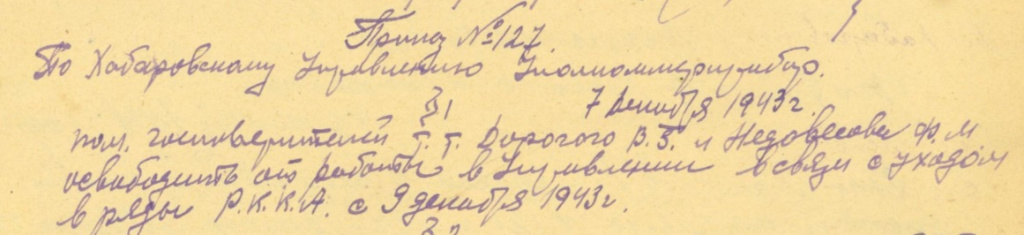 Приказ № 127.
По Хабаровскому Управлению Уполкоммеризмбюро.
§1 7 декабря 1943 г.
пом. госповерителей т. т. Дорогого В. З. и Недовесова Ф. М
освободить от работы в Управлении в связи с уходом
в ряды Р. К. К. А. с 9 декабря 1943 г.